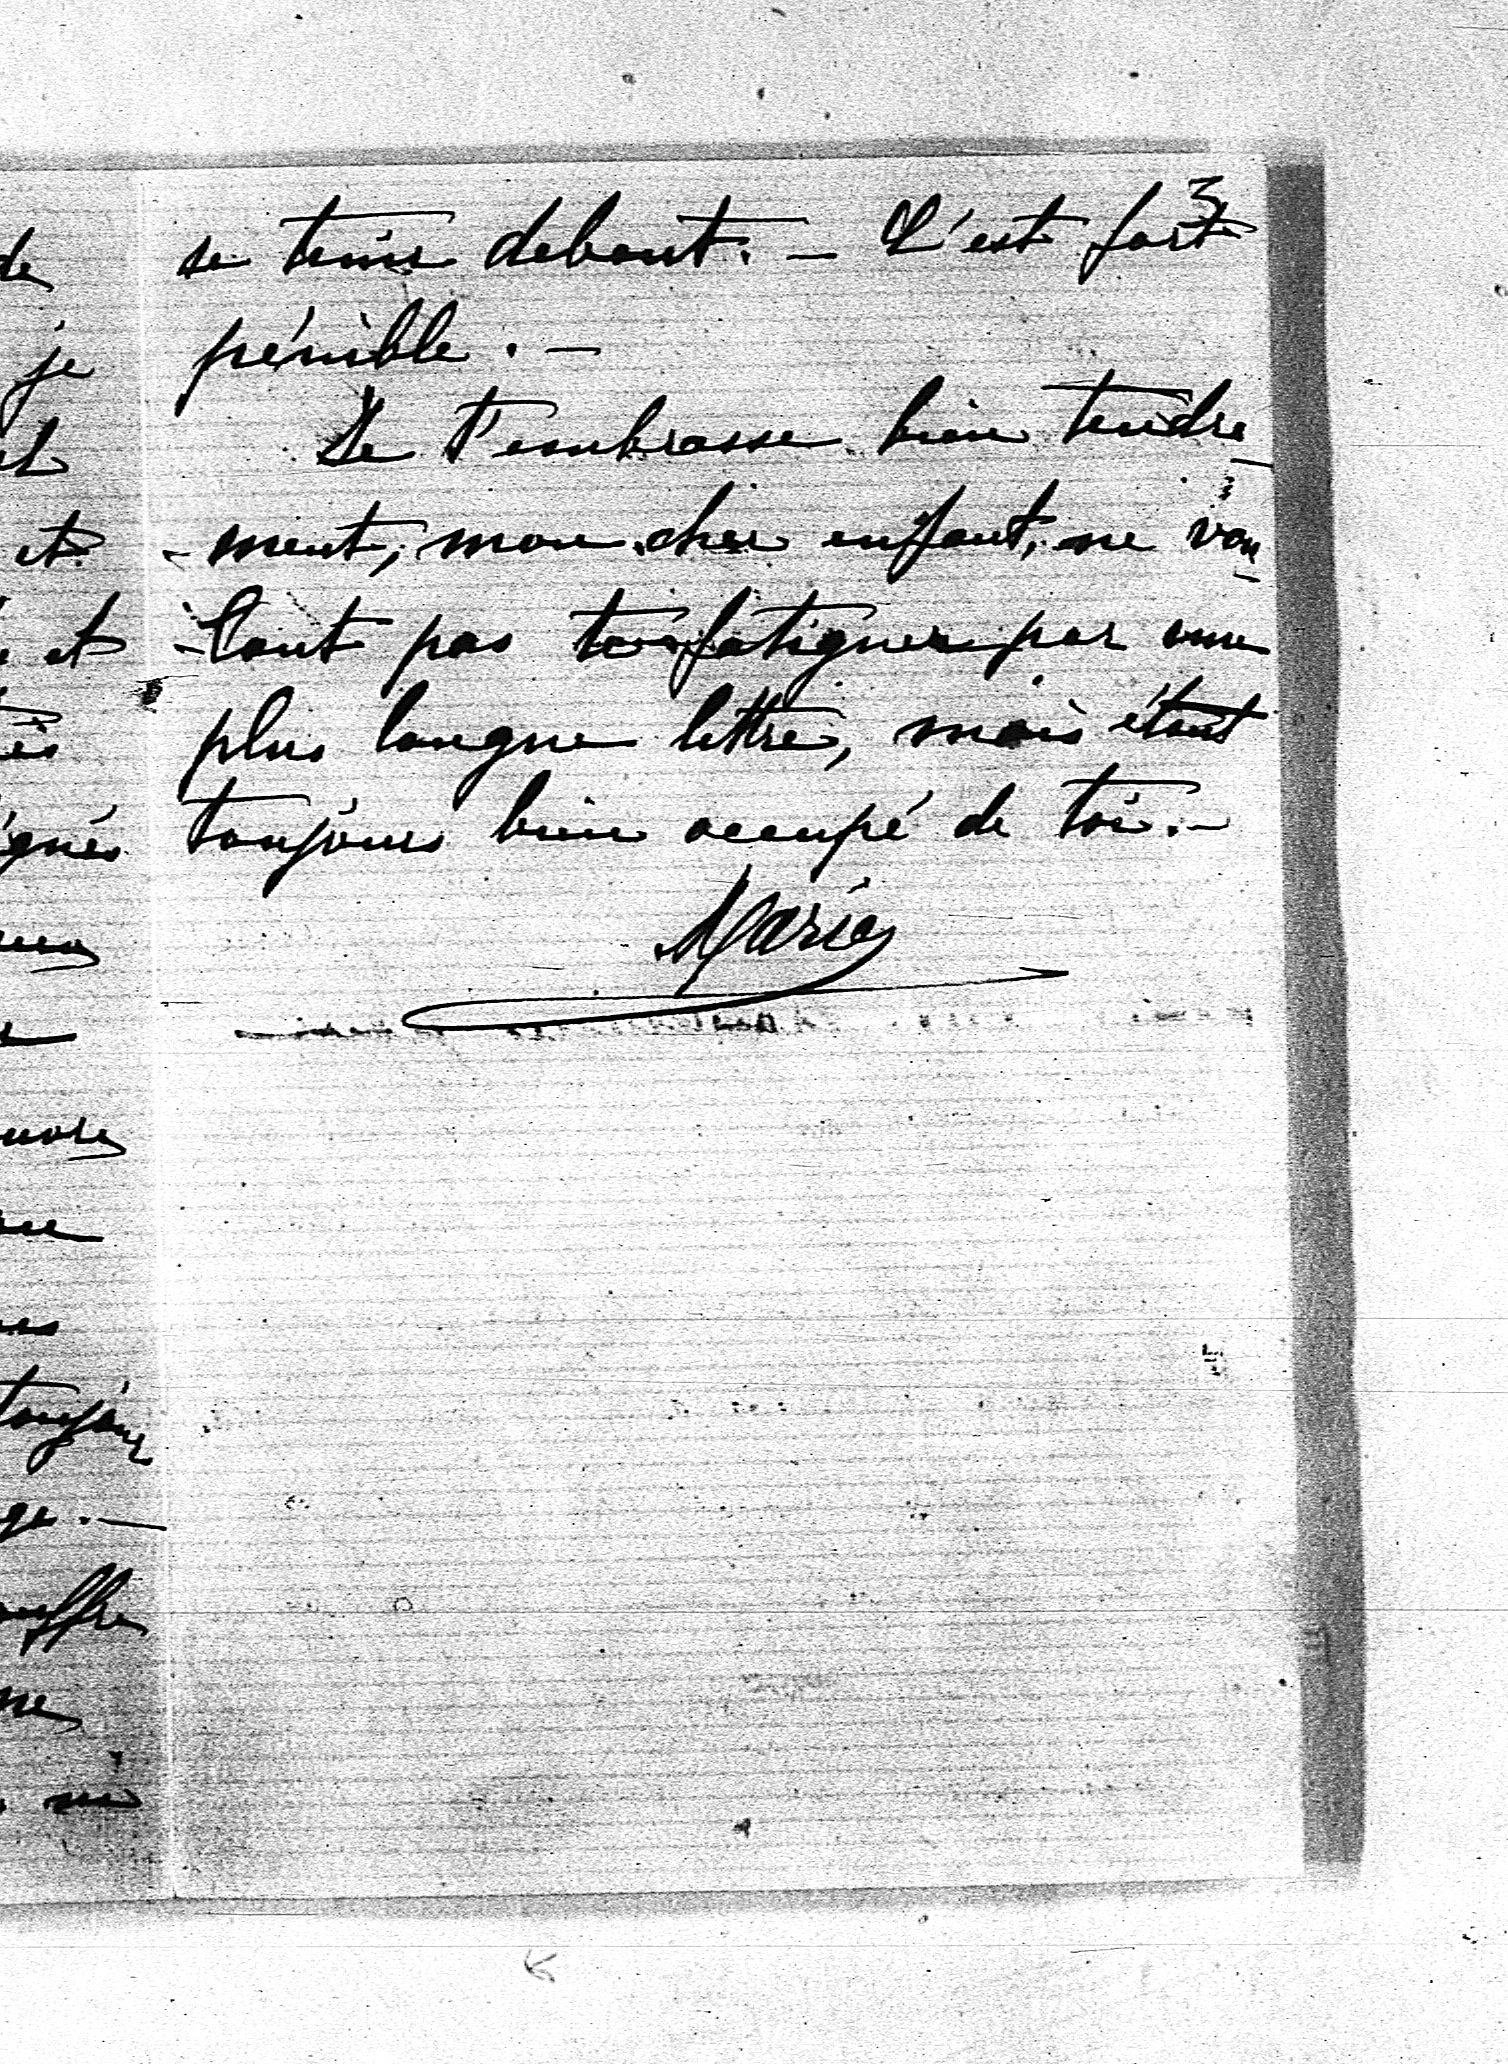 3
se tenir debout. — C'est fort
pénible. —
Je t'embrasse bien tendre-
-ment, mon cher enfant, ne vou-
-lant pas te fatiguer par une
plus longue lettre, mais étant
toujours bien occupé de toi. —
Marie
de
je
et
et
et
ignés
toujours
ouffre
me
ne